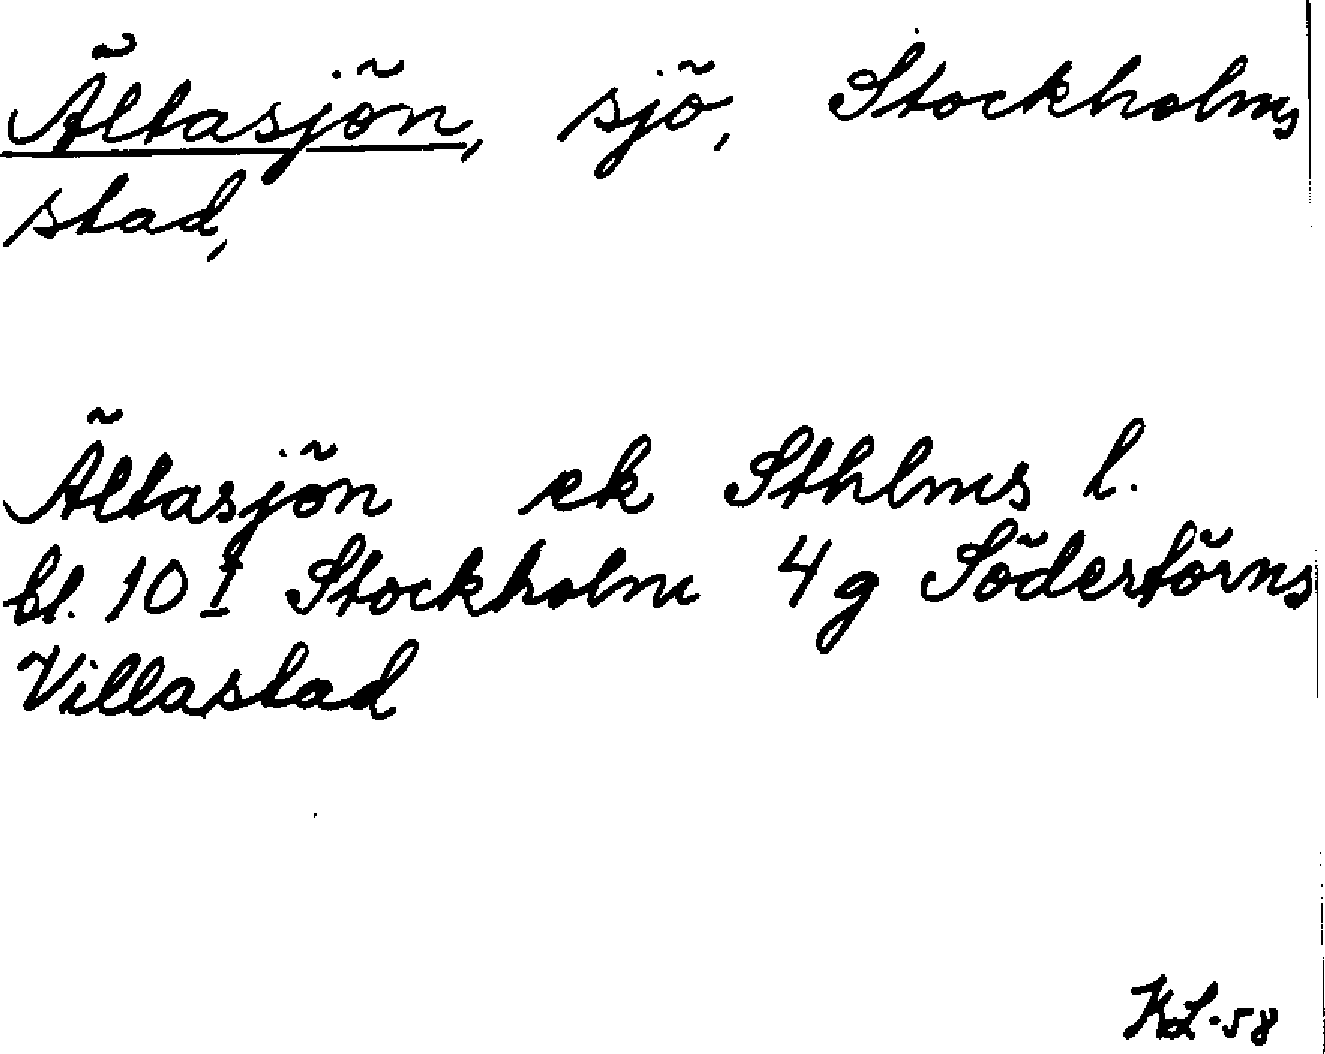 Ältasjön, sjö, Stockholms
stad,
Ältasjön ek Sthlms l.
bl. 10 I Stockholm 4 g Södertörns
Villastad
KL-58